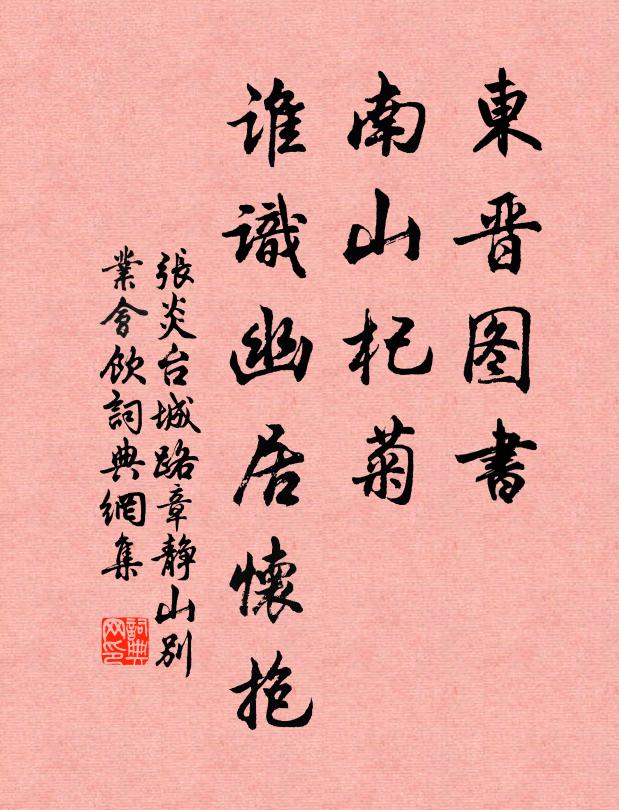 東晋图書
南山杞菊
誰識幽居懷抱
張炎台城路章静山別
業會飲詞典網集
詞典
网印